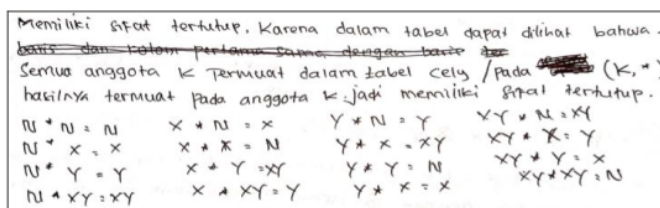 Memiliki sifat tertutup. Karena dalam tabel dapat dilihat bahwa.
baris dan kolom pertama sama dengan baris
Semua anggota K termuat dalam tabel cely / pada (K, *)
hasilnya termuat pada anggota K. jadi memiliki sifat tertutup.
N * N = N X * N = X Y * N = Y XY * N = XY
N * X = X X * X = N Y * X = XY XY * X = Y
N * Y = Y X * Y = XY Y * Y = N XY * Y = X
N * XY = XY X * XY = Y Y * X = X XY * XY = N